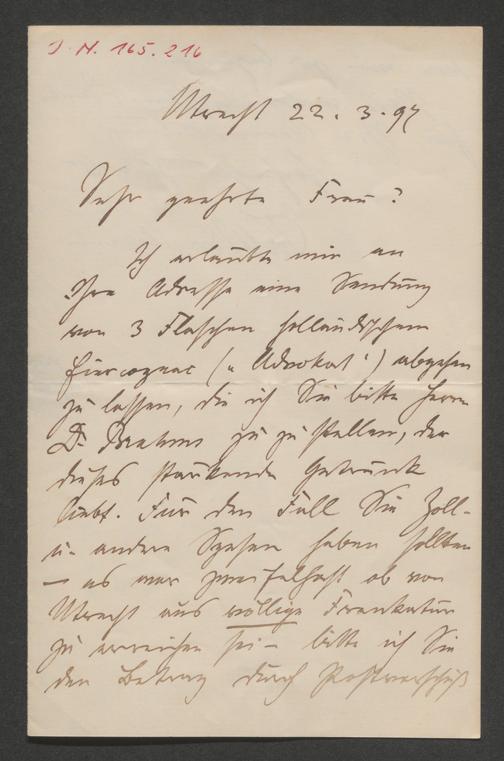 J. N. 165.216
Utrecht 22. 3. 97
Sehr geehrte Frau!
Ich erlaubte mir an
Ihre Adresse eine Sendung
von 3 Flaschen holländischem
Eiercognac („Advokat") abgehen
zu lassen, die ich Sie bitte Herrn
Dr. Brahms zu zu stellen, der
dieses stärkende Getränk
liebt. Für den Fall Sie Zoll-
u. andere Spesen haben sollten
— es war zweifelhaft ob von
Utrecht aus völlige Frankatur
zu erreichen sei — bitte ich Sie
den Betrag durch Postvorschuß